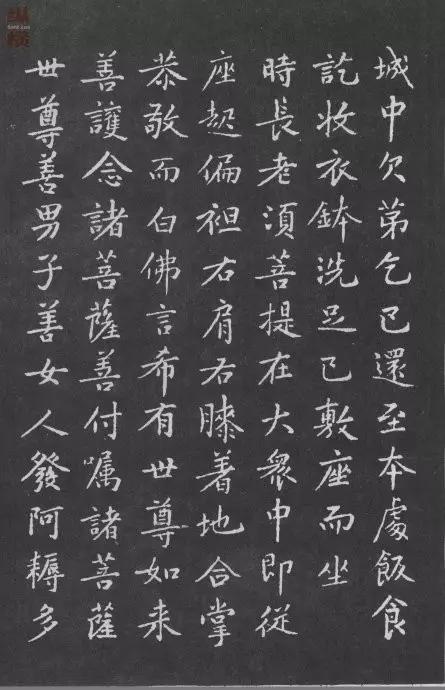 城中欠苐乞已還至本處飯食
訖收衣鉢洗足已敷座而坐
時長老湏菩提在大衆中即從
座起偏袒右肩右膝着地合掌
恭敬而白佛言希有世尊如来
善護念諸菩薩善付嘱諸菩薩
世尊善男子善女人發阿耨多